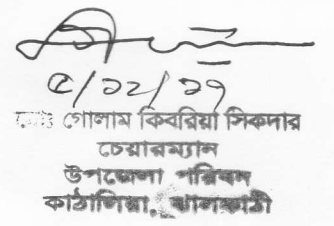 ৫/১২/১৭
মোঃ গোলাম কিবরিয়া সিকদার
চেয়ারম্যান
উপজেলা পরিষদ
কাঠালিয়া, ঝালকাঠী